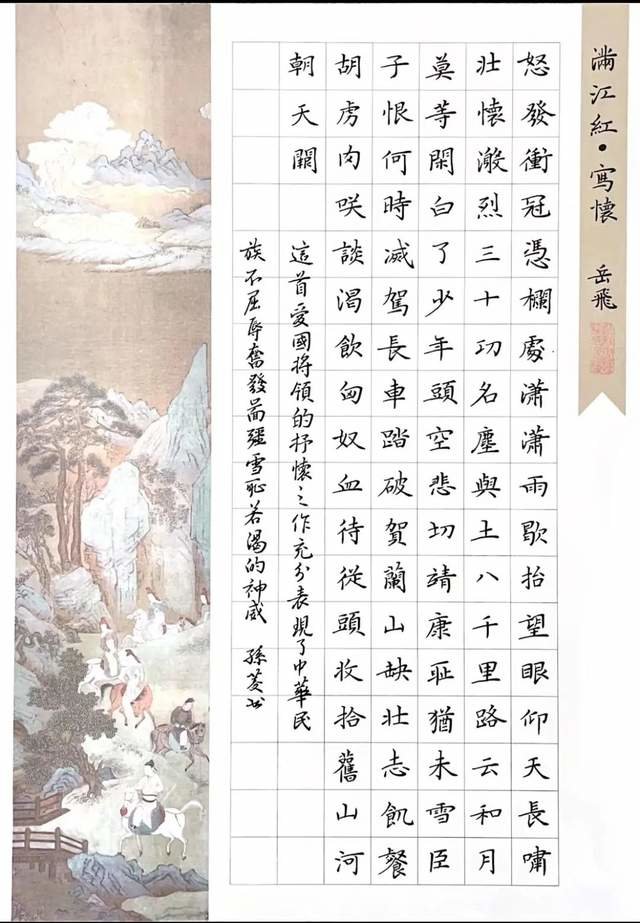 滿江紅•寫懷 岳飛
怒發衝冠憑欄處瀟瀟雨歇抬望眼仰天長嘯
壯懷激烈三十功名塵與土八千里路云和月
莫等閑白了少年頭空悲切靖康耻猶未雪臣
子恨何時滅駕長車踏破賀蘭山缺壯志飢餐
胡虜肉咲談渴飲匈奴血待從頭收拾舊山河
朝天闕
這首愛國將領的抒懷之作充分表現了中華民
族不屈辱奮發啚彊雪耻若渴的神威 孫菱书